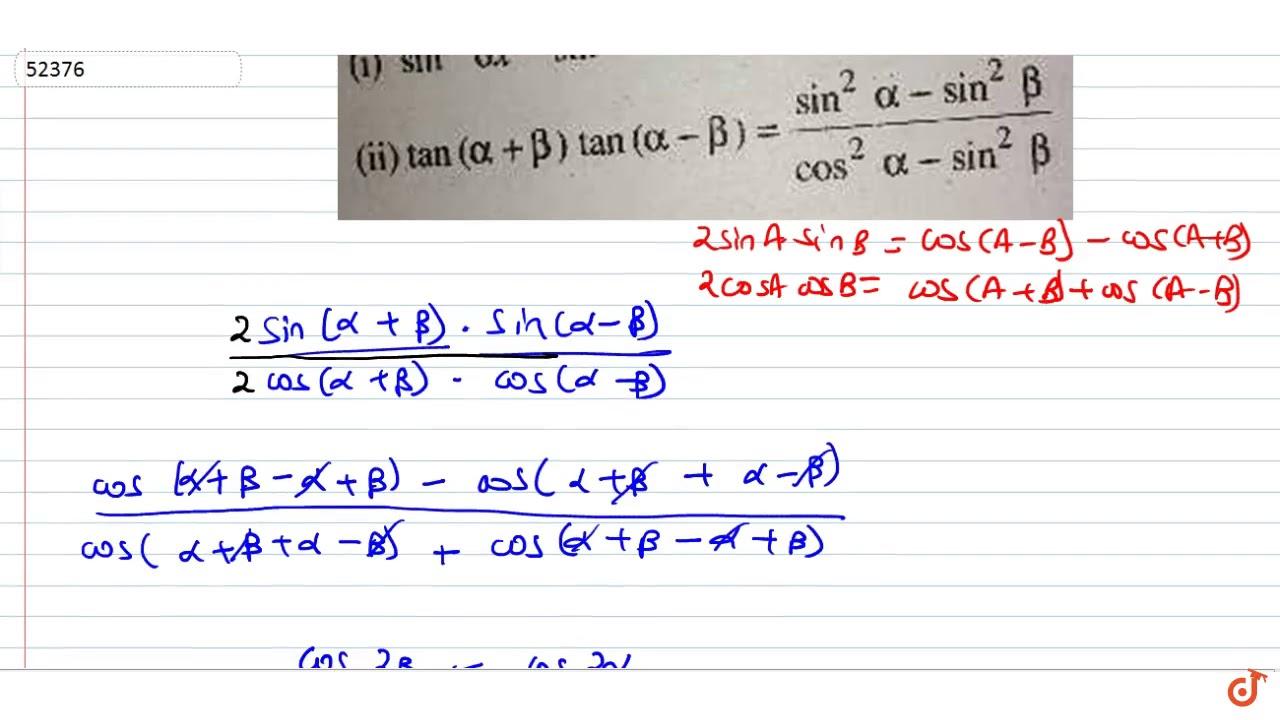 52376
(i) sin
(ii) tan (α + β) tan (α − β) = sin² α − sin² β / cos² α − sin² β
2 sin A sin B = cos(A − B) − cos(A + B)
2 cos A cos B = cos(A + B) + cos(A − B)
2 sin (α + β) · sin (α − β)
2 cos (α + β) · cos (α − β)
cos (α + β − α + β) − cos (α + β + α − β)
cos ( α + β + α − β) + cos (α + β − α + β)
cos 2β − cos 2α